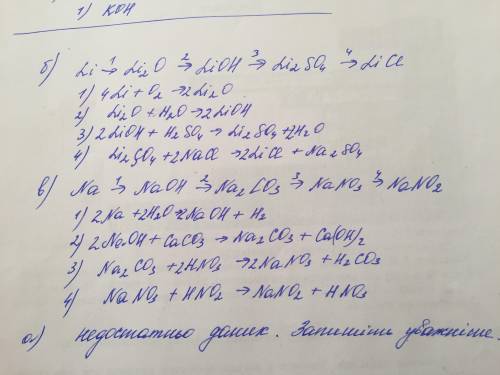 1) KOH
б) Li →1 Li₂O →2 LiOH →3 Li₂SO₄ →4 LiCl
1) 4Li + O₂ → 2Li₂O
2) Li₂O + H₂O → 2LiOH
3) 2LiOH + H₂SO₄ → Li₂SO₄ + 2H₂O
4) Li₂SO₄ + 2NaCl → 2LiCl + Na₂SO₄
в) Na →1 NaOH →2 Na₂CO₃ →3 NaNO₃ →4 NaNO₂
1) 2Na + 2H₂O → 2NaOH + H₂
2) 2NaOH + CaCO₃ → Na₂CO₃ + Ca(OH)₂
3) Na₂CO₃ + 2HNO₃ → 2NaNO₃ + H₂CO₃
4) NaNO₃ + HNO₂ → NaNO₂ + HNO₃
а) недостатньо даних. Запишіть уважніше.